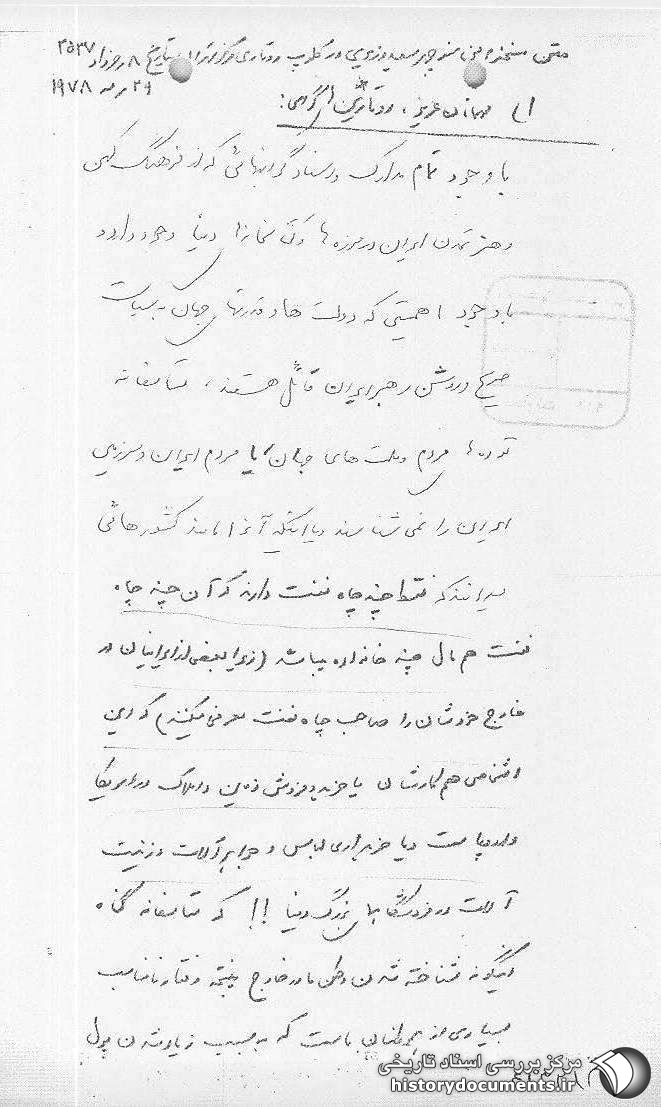 متن سخنرانی منوچهر سعید وزیری در کلوپ روتاری مرکز تهران بتاریخ ۸ خرداد ۲۵۳۷
۲۹ مه ۱۹۷۸
مهمانان عزیز، روتارین های گرامی:
با وجود تمام مدارک و اسناد گرانبهائی که از فرهنگ کهن
و هنر تمدن ایران در موزه ها و کتابخانه های دنیا وجود دارد و
با وجود اهمیتی که دولت ها و قدرتهای جهان به سیاست
صریح و روشن رهبر ایران قائل هستند، متاسفانه
توده های مردم و ملت های جهان یا مردم ایران و سرزمین
ایران را نمی شناسند و یا اینکه آنرا مانند کشورهائی
میدانند که فقط چند چاه نفت دارند که آن چند چاه
نفت هم مال چند خانواده میباشد (زیرا بعضی از ایرانیان در
خارج خودشان را صاحب چاه نفت معرفی میکنند) که این
اشخاص هم کارشان یا خرید و فروش زمین و املاک در امریکا
و اروپا است و یا خریداری لباس و جواهرآلات و زینت
آلات در فروشگاههای بزرگ دنیا !! که متاسفانه گناه
اینگونه شناخته شدن وطن ما در خارج نتیجه رفتار نامناسب
بسیاری از هموطنان ماست که به سبب زیاد شدن پول
مرکز بررسی اسناد تاریخی
historydocuments.ir